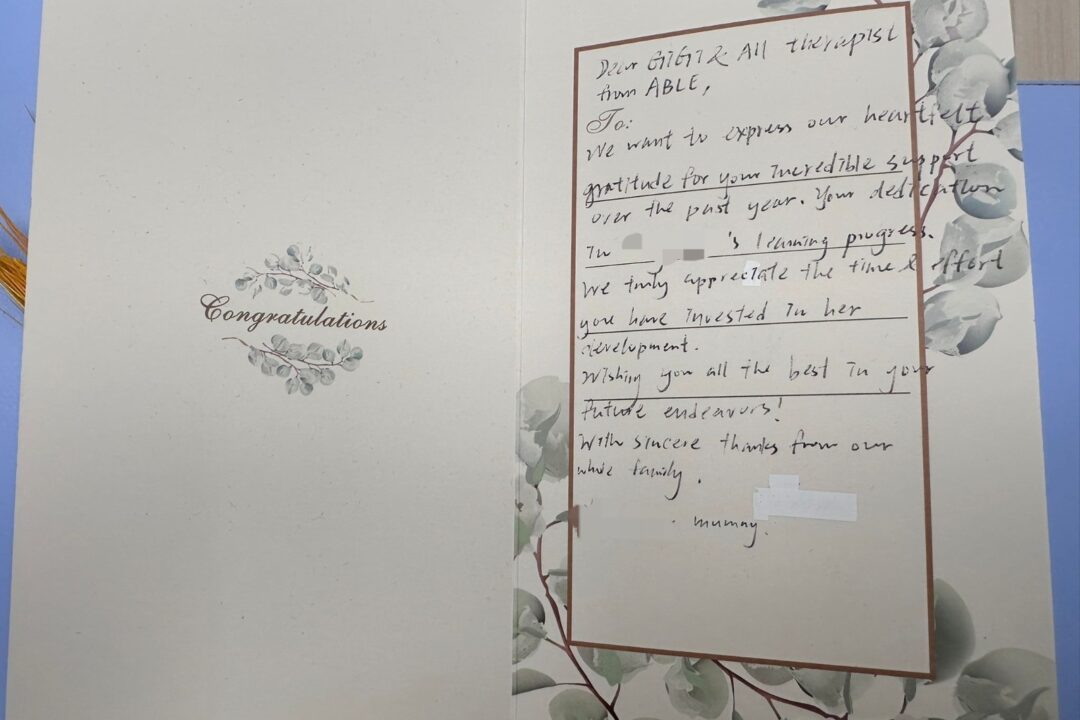 Congratulations
Dear GiGi & All therapist
from ABLE,
To:
We want to express our heartfelt
gratitude for your incredible support
over the past year. Your dedication
in 's learning progress.
We truly appreciate the time & effort
you have invested in her
development.
Wishing you all the best in your
future endeavors!
With sincere thanks from our
whole family.
mummy.